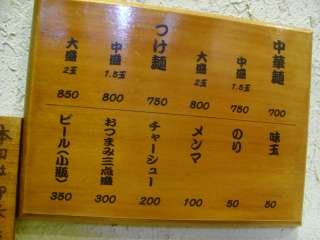 中華麺 700
中盛 1.5玉 750
大盛 2玉 800
つけ麺 750
中盛 1.5玉 800
大盛 2玉 850
味玉 50
のり 50
メンマ 100
チャーシュー 200
おつまみ三点盛 300
ビール(小瓶) 350
本日は